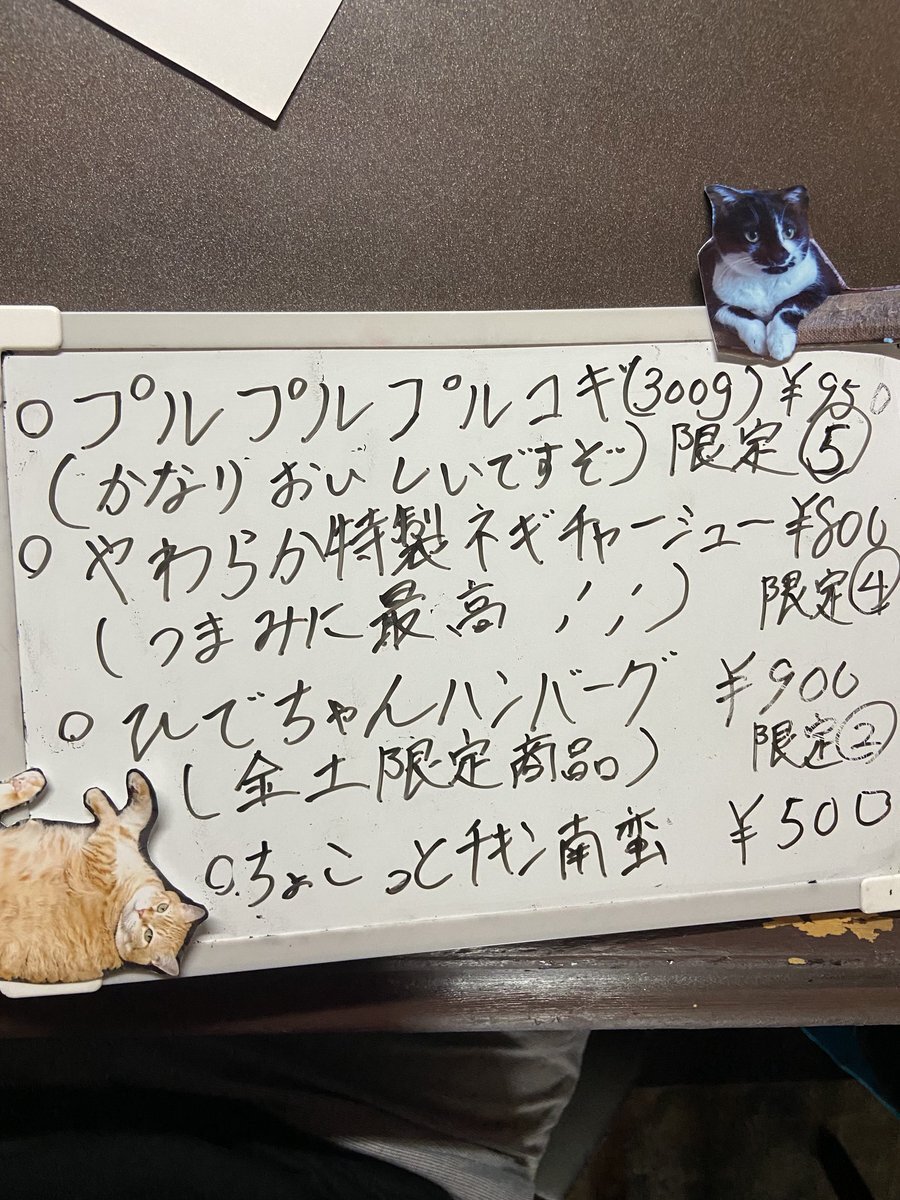 ○プルプルプルコギ(300g)¥950
(かなりおいしいですぞ)限定⑤
○やわらか特製ネギチャーシュー¥800
(つまみに最高!!)限定④
○ひでちゃんハンバーグ ¥900
(金土限定商品)限定②
○ちょこっとチキン南蛮 ¥500